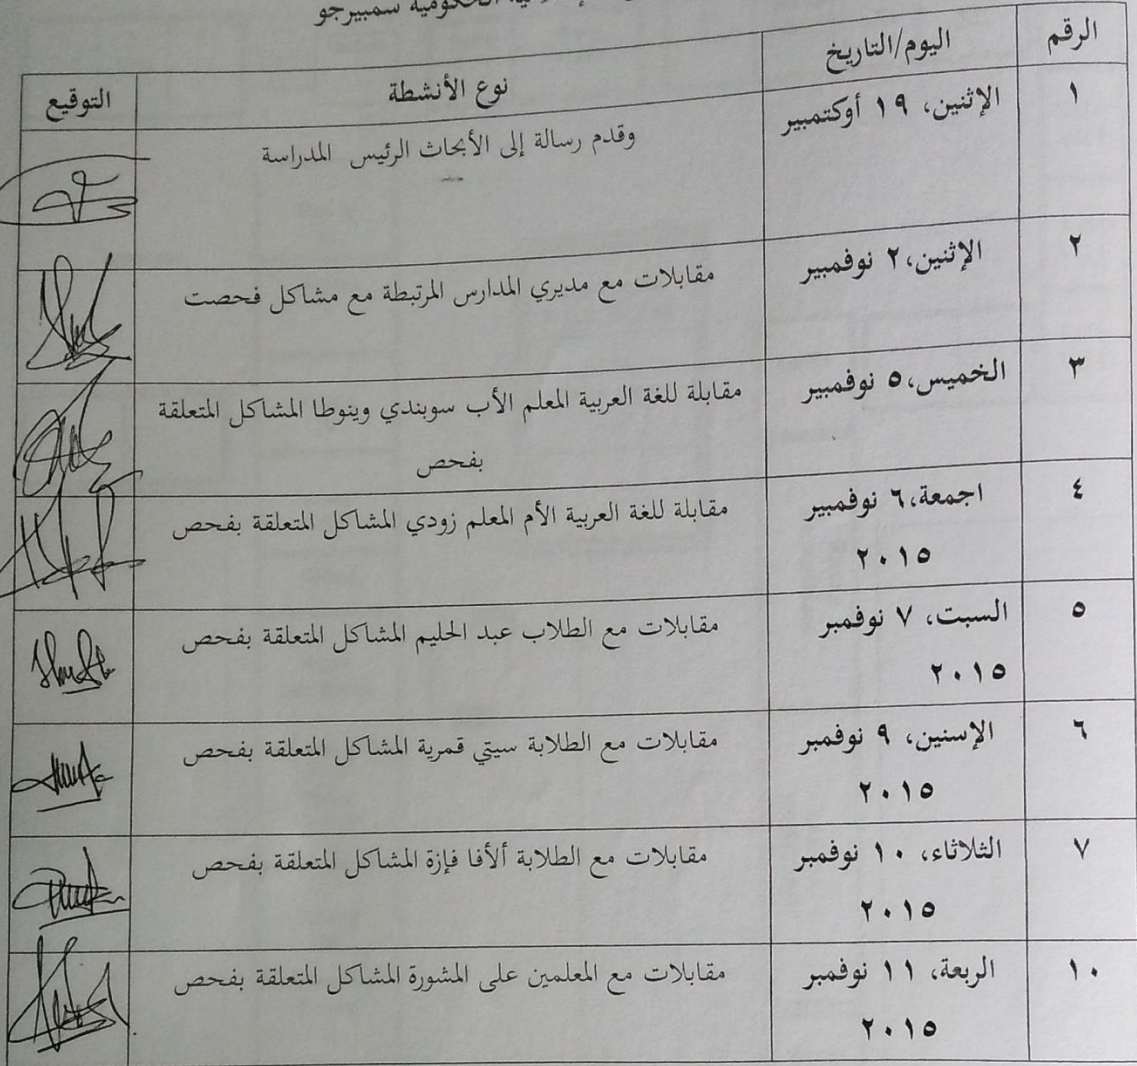 الحكومية سمبيرجو
الرقم اليوم/التاريخ نوع الأنشطة التوقيع
١ الإثنين، ١٩ أوكتمبير وقدم رسالة إلى الأبحاث الرئيس المدراسة
٢ الإثنين،٢ نوفمبير مقابلات مع مديري المدارس المرتبطة مع مشاكل فحصت
٣ الخميس،٥ نوفمبير مقابلة للغة العربية المعلم الأب سوبندي وينوطا المشاكل المتعلقة
بفحص
٤ اجمعة،٦ نوفمبير مقابلة للغة العربية الأم المعلم زودي المشاكل المتعلقة بفحص
٢٠١٥
٥ السبت، ٧ نوفمبر مقابلات مع الطلاب عبد الحليم المشاكل المتعلقة بفحص
٢٠١٥
٦ الإسنين، ٩ نوفمبر مقابلات مع الطلابة سيتي قمرية المشاكل المتعلقة بفحص
٢٠١٥
٧ الثلاثاء، ١٠ نوفمبر مقابلات مع الطلابة ألأفا فإزة المشاكل المتعلقة بفحص
٢٠١٥
١٠ الربعة، ١١ نوفمبر مقابلات مع المعلمين على المشورة المشاكل المتعلقة بفحص
٢٠١٥